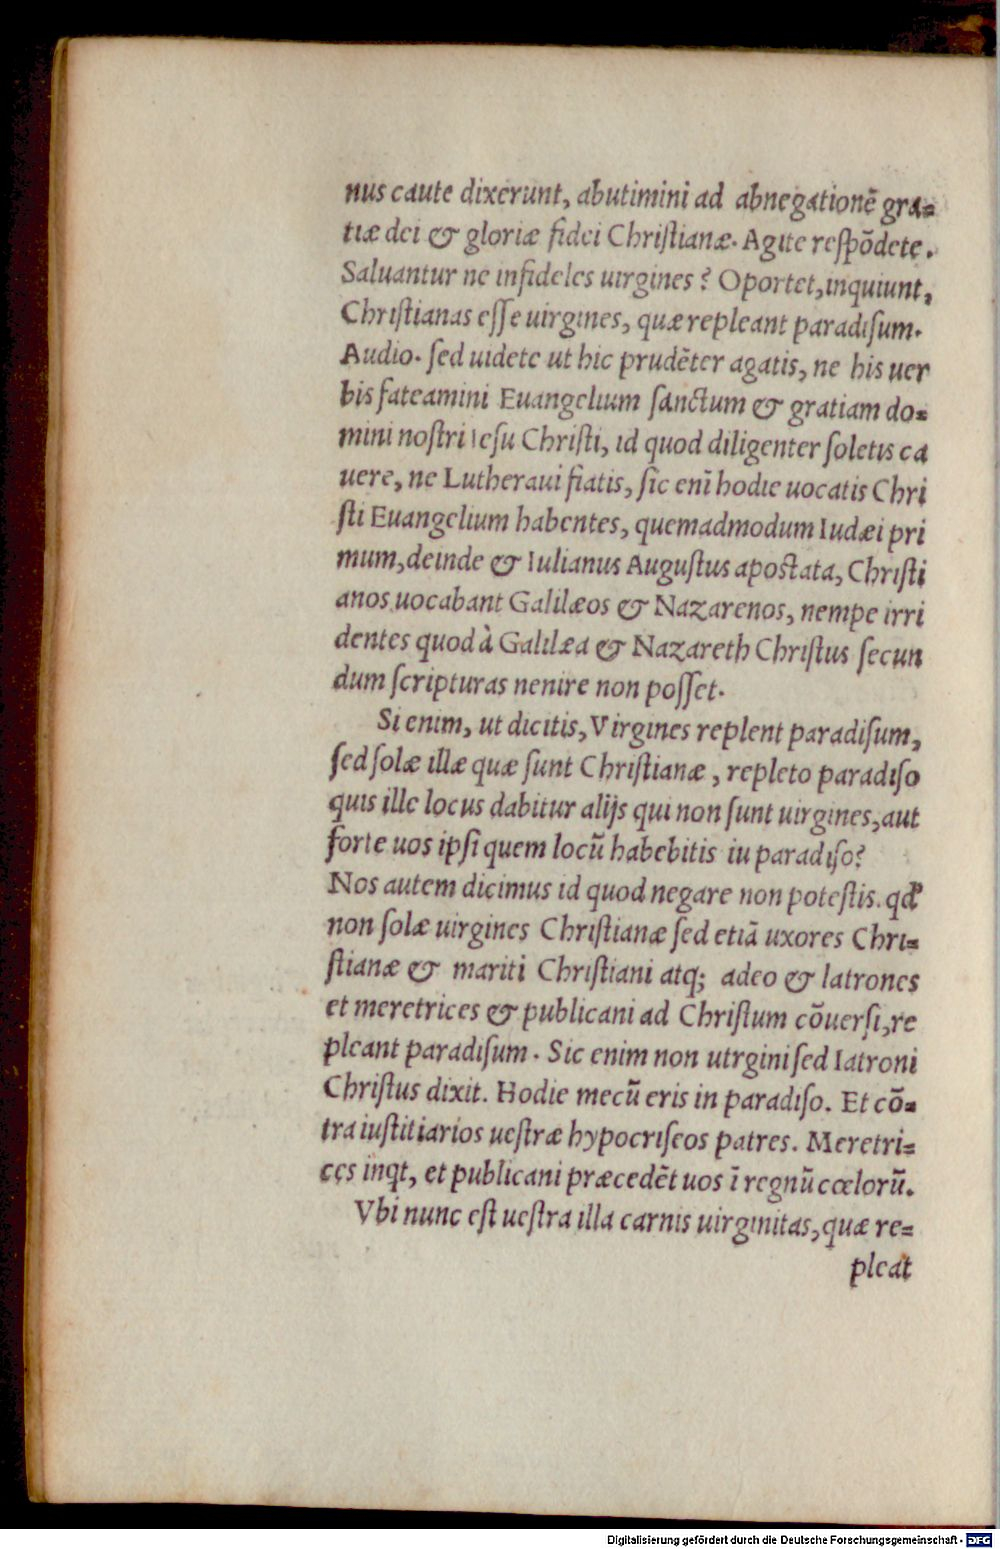 nus caute dixerunt, abutimini ad abnegationẽ gra=
tiæ dei & gloriæ fidei Chriſtianæ. Agite reſpõdete.
Saluantur ne infideles uirgines? Oportet, inquiunt,
Chriſtianas eſſe uirgines, quæ repleant paradiſum.
Audio. ſed uidete ut hic prudẽter agatis, ne his uer
bis fateamini Euangelium ſanctum & gratiam do=
mini noſtri Ieſu Chriſti, id quod diligenter ſoletis ca
uere, ne Lutheraui fiatis, ſic enĩ hodie uocatis Chri
ſti Euangelium habentes, quemadmodum Iudæi pri
mum, deinde & Iulianus Auguſtus apostata, Chriſti
anos uocabant Galilæos & Nazarenos, nempe irri
dentes quod à Galilæa & Nazareth Chriſtus ſecun
dum ſcripturas nenire non poſſet.
Si enim, ut dicitis, Virgines replent paradiſum,
ſed ſolæ illæ quæ ſunt Chriſtianæ, repleto paradiſo
quis ille locus dabitur alijs qui non ſunt uirgines, aut
forte uos ipſi quem locũ habebitis iu paradiſo?
Nos autem dicimus id quod negare non poteſtis. qđ
non ſolæ uirgines Chriſtianæ ſed etiã uxores Chri=
ſtianæ & mariti Chriſtiani atq; adeo & latrones
et meretrices & publicani ad Chriſtum cõuerſi, re
pleant paradiſum. Sic enim non utrgini ſed Iatroni
Chriſtus dixit. Hodie mecũ eris in paradiſo. Et cõ=
tra iuſtitiarios ueſtræ hypocriſeos patres. Meretri=
ces inqt, et publicani præcedẽt uos ĩ regnũ cœlorũ.
Vbi nunc eſt ueſtra illa carnis uirginitas, quæ re=
pleat
Digitalisierung gefördert durch die Deutsche Forschungsgemeinschaft - DFG